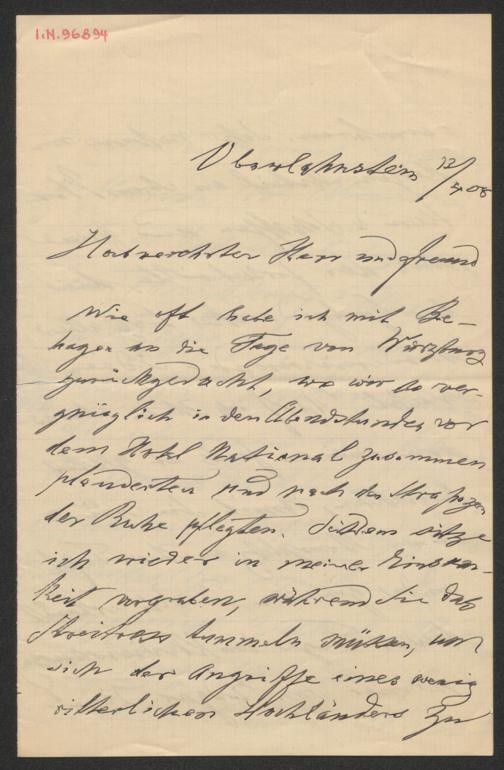 I.N. 96894
Oberlahnstein 12/
4 08
Hochverehrter Herr und Freund
Wie oft habe ich mit Be-
hagen an die Tage von Würzburg
zurückgedacht, wo wir so ver-
gnüglich in den Abendstunden vor
dem Hotel National zusammen
plauderten und nach den Strapazen
der Ruhe pflegten. Seitdem sitze
ich wieder in meiner Einsam-
keit vergraben, während Sie das
Streitross tummeln müssen, um
sich der Angriffe eines wenig
ritterlichen Hochländers zu